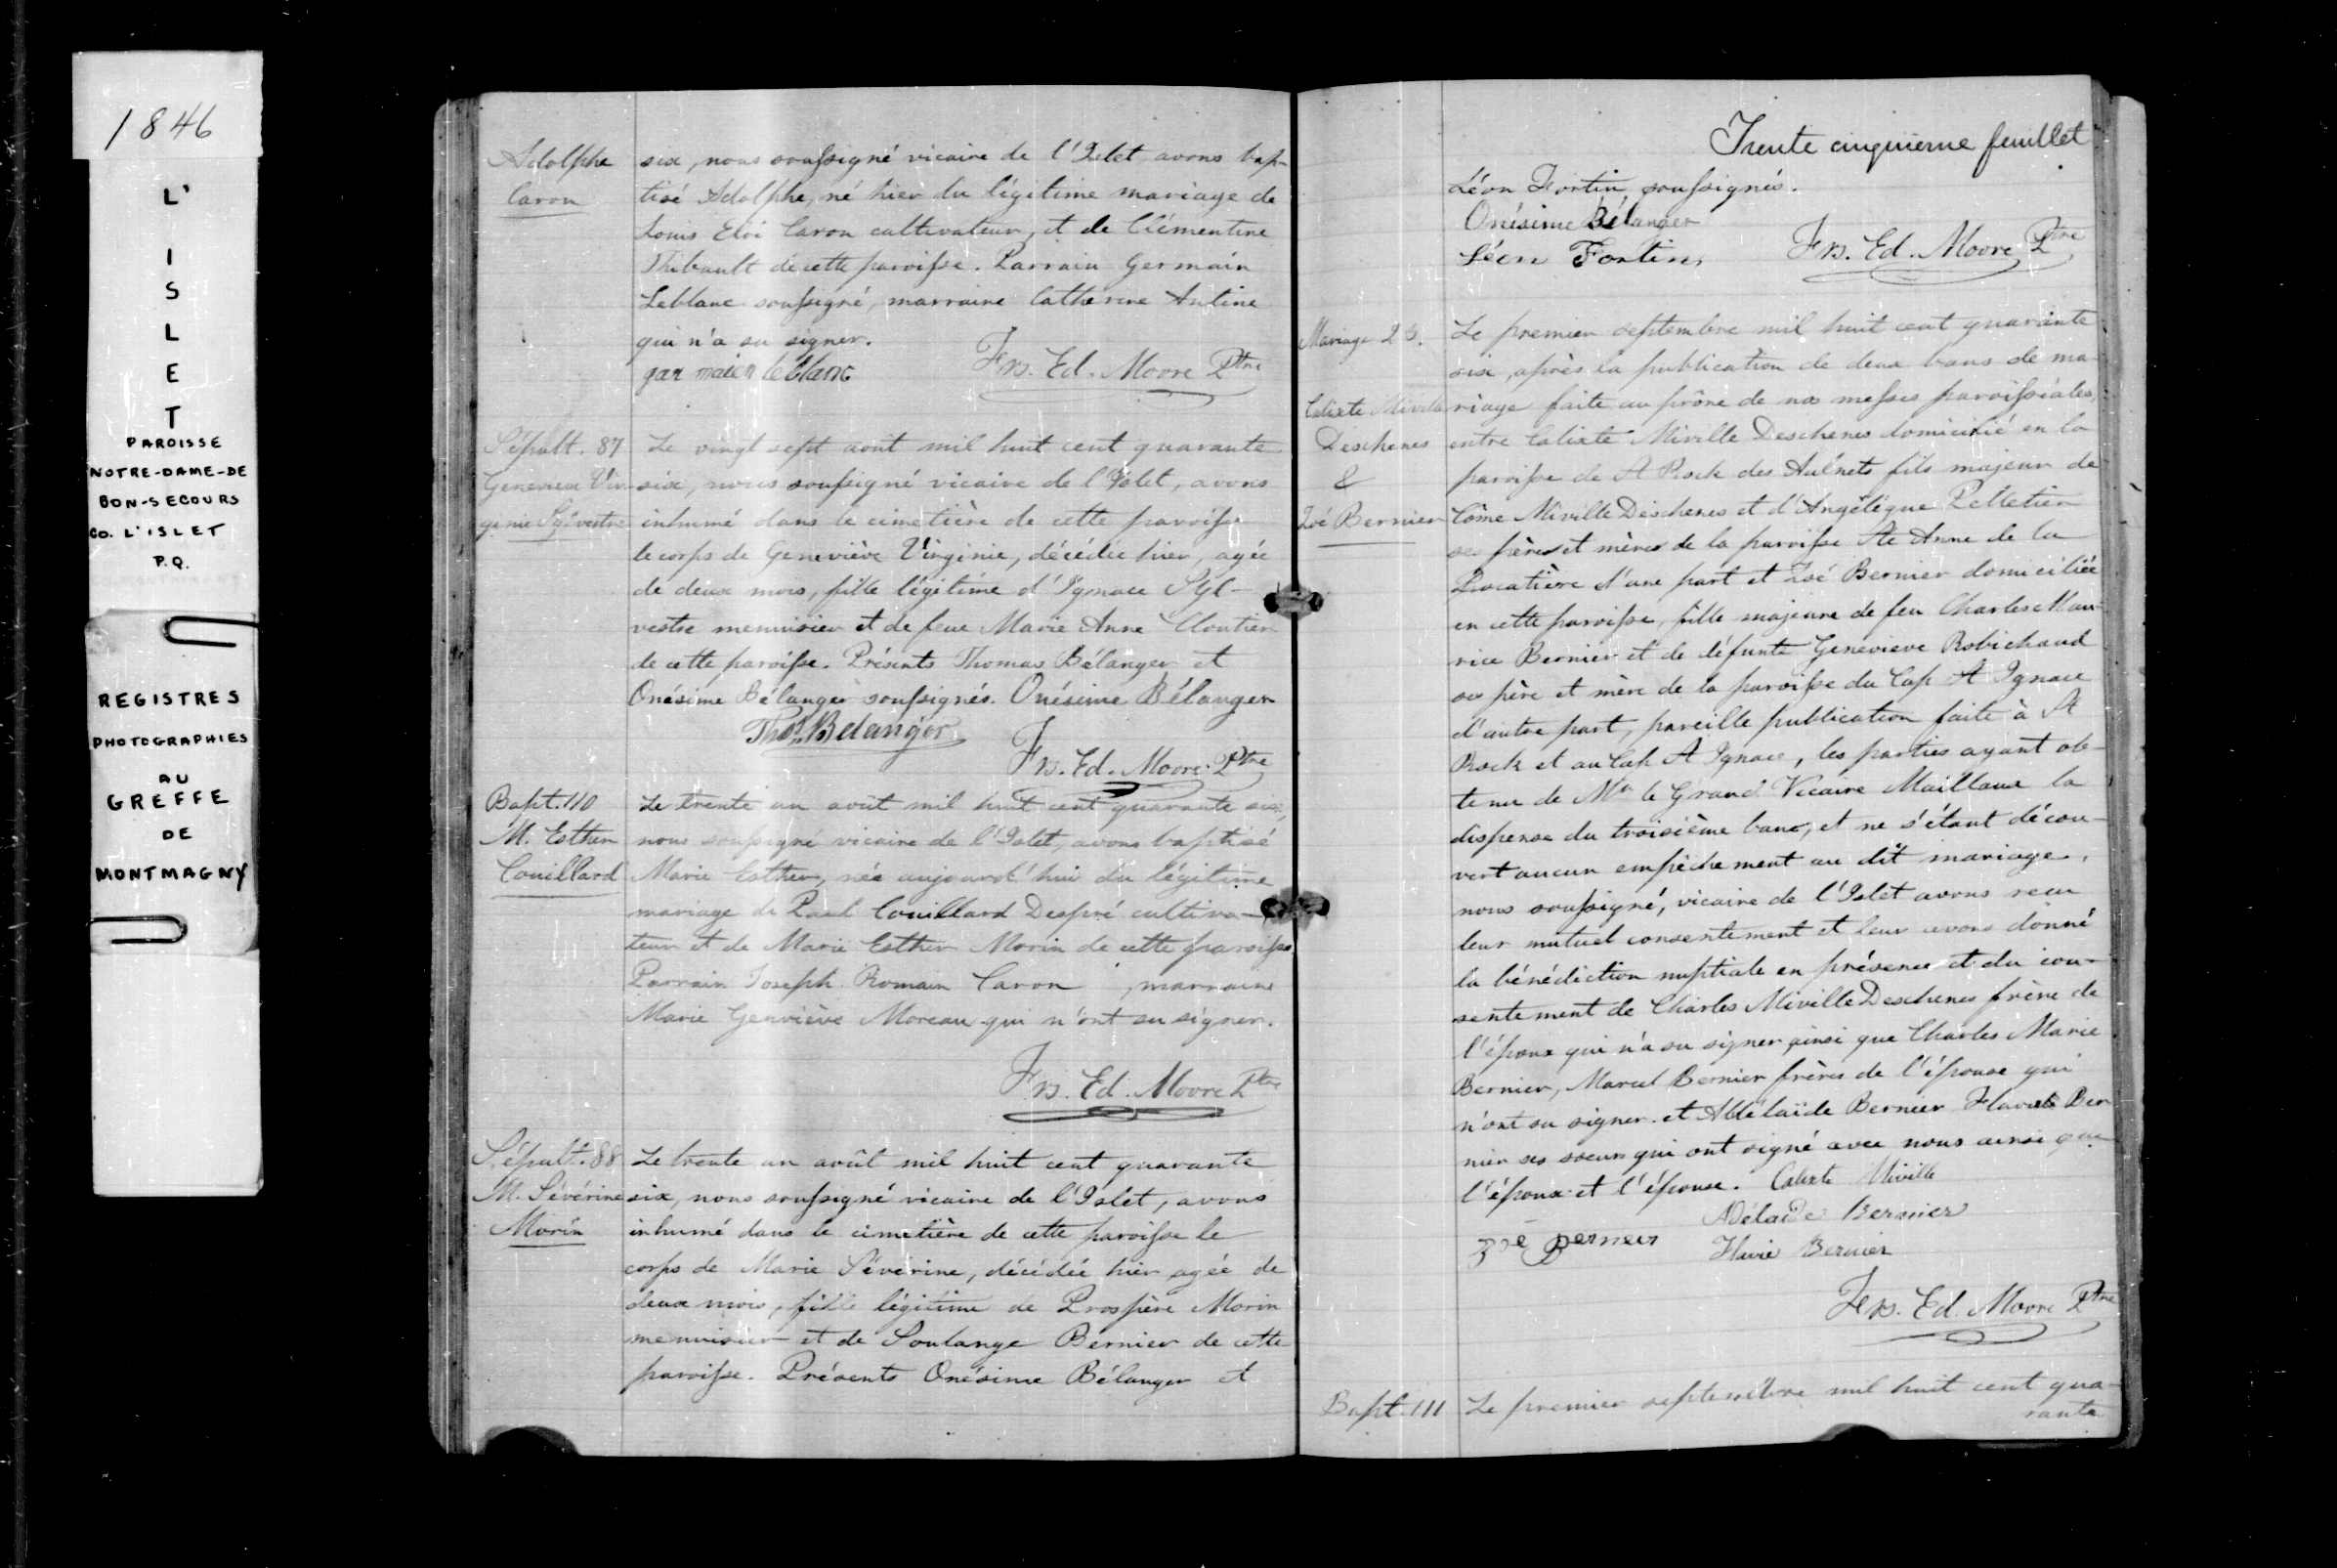 1846
L'
I
S
L
E
T
PAROISSE
NOTRE-DAME-DE
BON-SECOURS
CO. L'ISLET
P.Q.
REGISTRES
PHOTOGRAPHIES
AU
GREFFE
DE
MONTMAGNY
Adolphe
Caron
six, nous soussigné vicaire de l'Islet avons bap-
tisé Adolphe, né hier du légitime mariage de
Louis Eloi Caron cultivateur, et de Clémentine
Thibault de cette paroisse. Parrain Germain
Leblanc soussigné, marraine Catherine Antine
qui n'a su signer.
germain leblanc Frs. Ed. Moore Ptre
Sépult. 87
Genevieve Vir-
ginie Sylvestre
Le vingt sept août mil huit cent quarante
six, nous soussigné vicaire de l'Islet, avons
inhumé dans le cimetière de cette paroisse
le corps de Geneviève Virginie, décédée hier, agée
de deux mois, fille légitime d'Ignace Syl-
vestre menuisier et de feue Marie Anne Cloutier
de cette paroisse. Présents Thomas Bélanger et
Onésime Bélanger soussignés. Onésime Bélanger
Thos. Belanger
Frs. Ed. Moore Ptre
Bapt. 110
M. Esther
Couillard
Le trente un août mil huit cent quarante six,
nous soussigné vicaire de l'Islet, avons baptisé
Marie Esther, née aujourd'hui du légitime
mariage de Paul Couillard Despré cultiva-
teur et de Marie Esther Morin de cette paroisse
Parrain Joseph Romain Caron, marraine
Marie Geneviève Moreau qui n'ont su signer.
Frs. Ed. Moore Ptre
Sépult. 88
M. Sévérine
Morin
Le trente un août mil huit cent quarante
six, nous soussigné vicaire de l'Islet, avons
inhumé dans le cimetière de cette paroisse le
corps de Marie Sévérine, décédée hier agée de
deux mois, fille légitime de Prospère Morin
menuisier et de Soulange Bernier de cette
paroisse. Présents Onésime Bélanger et
Trente cinquième feuillet
Léon Fortin soussignés.
Onésime Bélanger
Léon Fortin Frs. Ed. Moore Ptre
Mariage
Calixte Miville
Deschenes
&
Zoé Bernier
Le premier septembre mil huit cent quarante
six, après la publication de deux bans de ma-
riage faite au prône de nos messes paroissiales,
entre Calixte Miville Deschenes domicilié en la
paroisse de St Rock des Aulnets fils majeur de
Côme Miville Deschenes et d'Angélique Pelletier
ses père et mère de la paroisse Ste Anne de la
Pocatière d'une part et Zoé Bernier domiciliée
en cette paroisse, fille majeure de feu Charles Mau-
rice Bernier et de défunte Genevieve Robichaud
ses père et mère de la paroisse du Cap St Ignace
d'autre part, pareille publication faite à St
Rock et au Cap St Ignace, les parties ayant ob-
tenu de Mr le Grand Vicaire Mailloux la
dispense du troisième banc, et ne s'étant décou-
vert aucun empêchement au dit mariage,
nous soussigné, vicaire de l'Islet avons recu
leur mutuel consentement et leur avons donné
la bénédiction nuptiale en présence et du con-
sentement de Charles Miville Deschenes frère de
l'époux qui n'a su signer ainsi que Charles Marie
Bernier, Marcel Bernier frères de l'épouse qui
n'ont su signer et Adélaïde Bernier Flavie Ber
nier ses soeurs qui ont signé avec nous ainsi que
l'époux et l'épouse. Calixte Miville
Adélaïde Bernier
Zoé Bernier Flavie Bernier
Frs. Ed. Moore Ptre
Bapt. 111
Le premier septembre mil huit cent qua-
rante